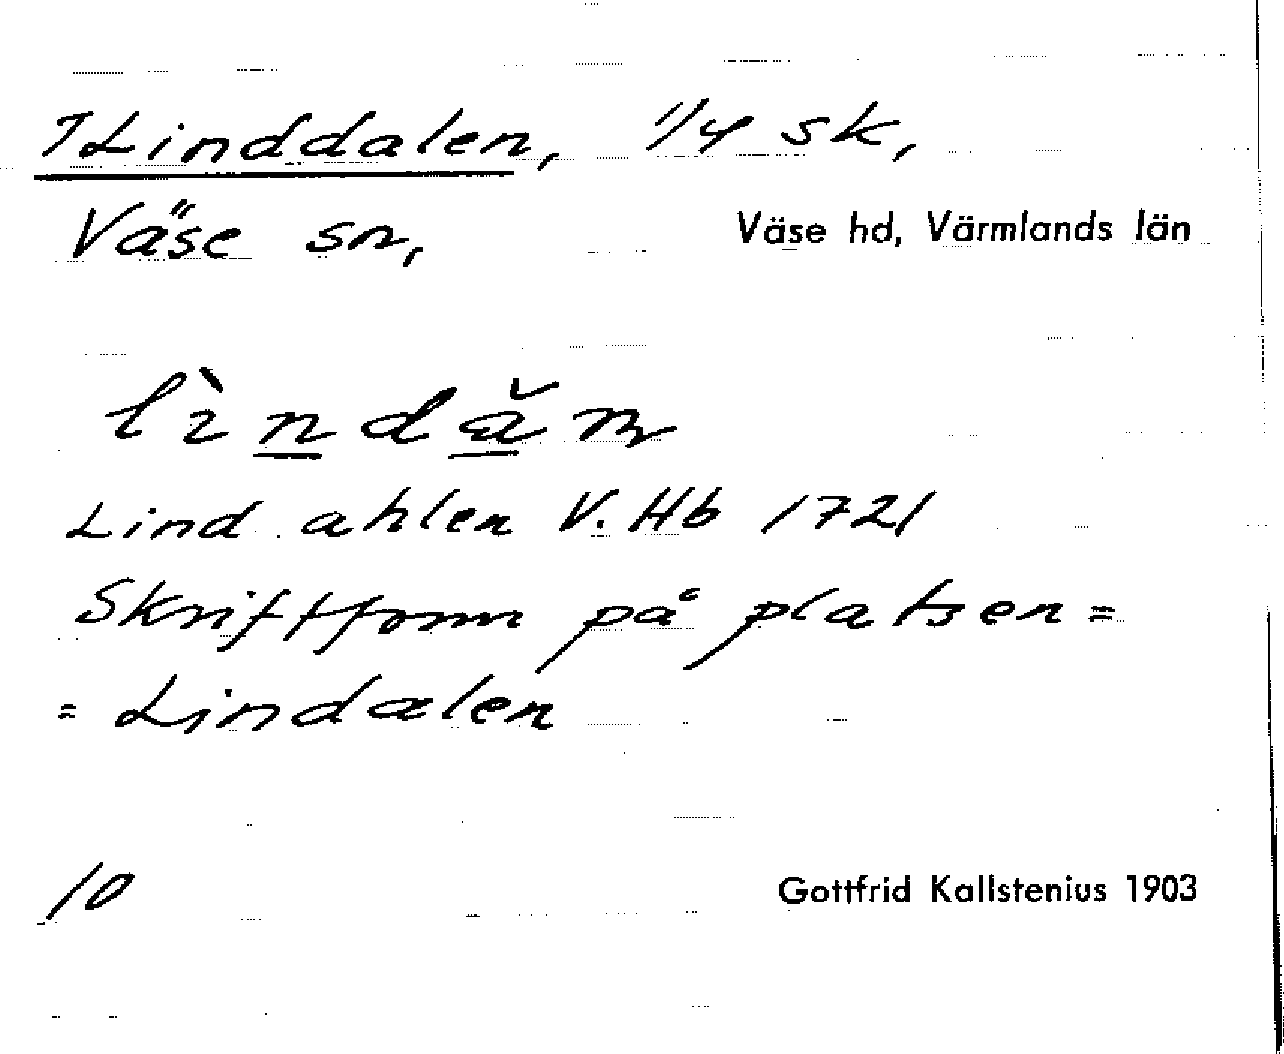 7 Linddalen, 1/4 sk,
Väse sn, Väse hd, Värmlands län
lìndăn
Lind ahlen V. Hb 1721
Skriftform på platsen =
= Lindalen
10 Gottfrid Kallstenius 1903